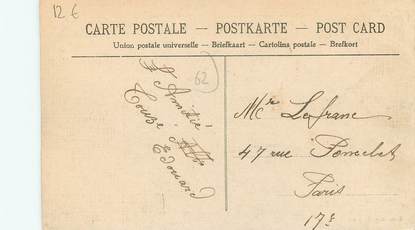 12 €
CARTE POSTALE – POSTKARTE – POST CARD
Union postale universelle – Briefkaart – Cartolina postale – Brefkort
62
Amitié
Edouard
Mr Lefranc
47 rue Poncelet
Paris
17e